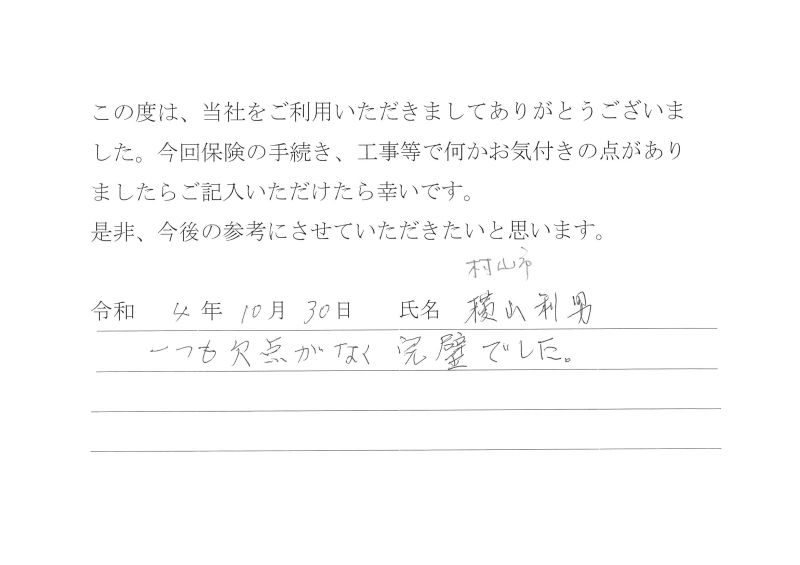 この度は、当社をご利用いただきましてありがとうございま
した。今回保険の手続き、工事等で何かお気付きの点があり
ましたらご記入いただけたら幸いです。
是非、今後の参考にさせていただきたいと思います。
村山市
令和 4 年 10 月 30 日 氏名 横山利男
一つも欠点がなく完璧でした。